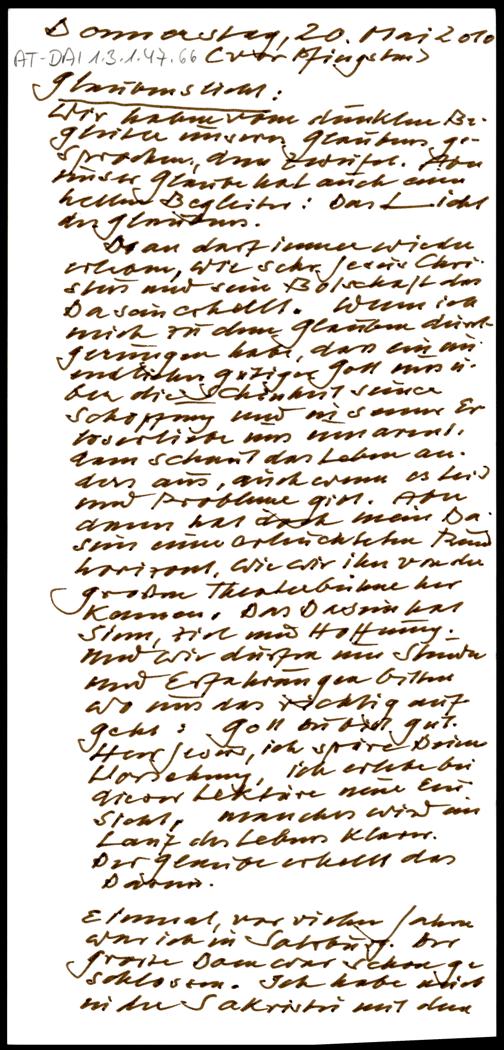 Donnerstag, 20. Mai 2010
AT-DAI 1.3.1.47.66 (vor Pfingsten)
Glaubenslicht:
Wir haben vom dunklen Be-
gleiter unseres Glaubens ge-
sprochen, dem Zweifel. Aber
unser Glaube hat auch einen
hellen Begleiter: Das Licht
des Glaubens.
Man darf immer wieder
erleben, wie sehr Jesus Chri-
stus und seine Botschaft das
Dasein erhellt. Wenn ich
mich zu dem Glauben durch
gerungen habe, dass ein un-
endlicher gütiger Gott uns ü-
ber die Schönheit seiner
Schöpfung und in seiner Er
löserliebe uns umarmt,
dann schaut das Leben an-
ders aus, auch wenn es Leid
und Probleme gibt. Aber
dann hat doch mein Da-
sein einen erleuchteten Rund
horizont, wie wir ihn von der
großen Theaterbühne her
kennen. Das Dasein hat
Sinn, Ziel und Hoffnung.
Und wir dürfen um Stunden
und Erfahrungen bitten
wo uns das richtig auf
geht: Gott du bist gut.
Herr Jesus, ich spüre Deine
Vorsehung, ich erlebe bei
dieser Lektüre neue Ein
sicht, manches wird im
Lauf des Lebens klarer.
Der Glaube erhellt das
Dasein.
Einmal, vor vielen Jahren
war ich in Salzburg. Der
große Dom war schon ge
schlossen. Ich habe mich
in der Sakristei mit dem